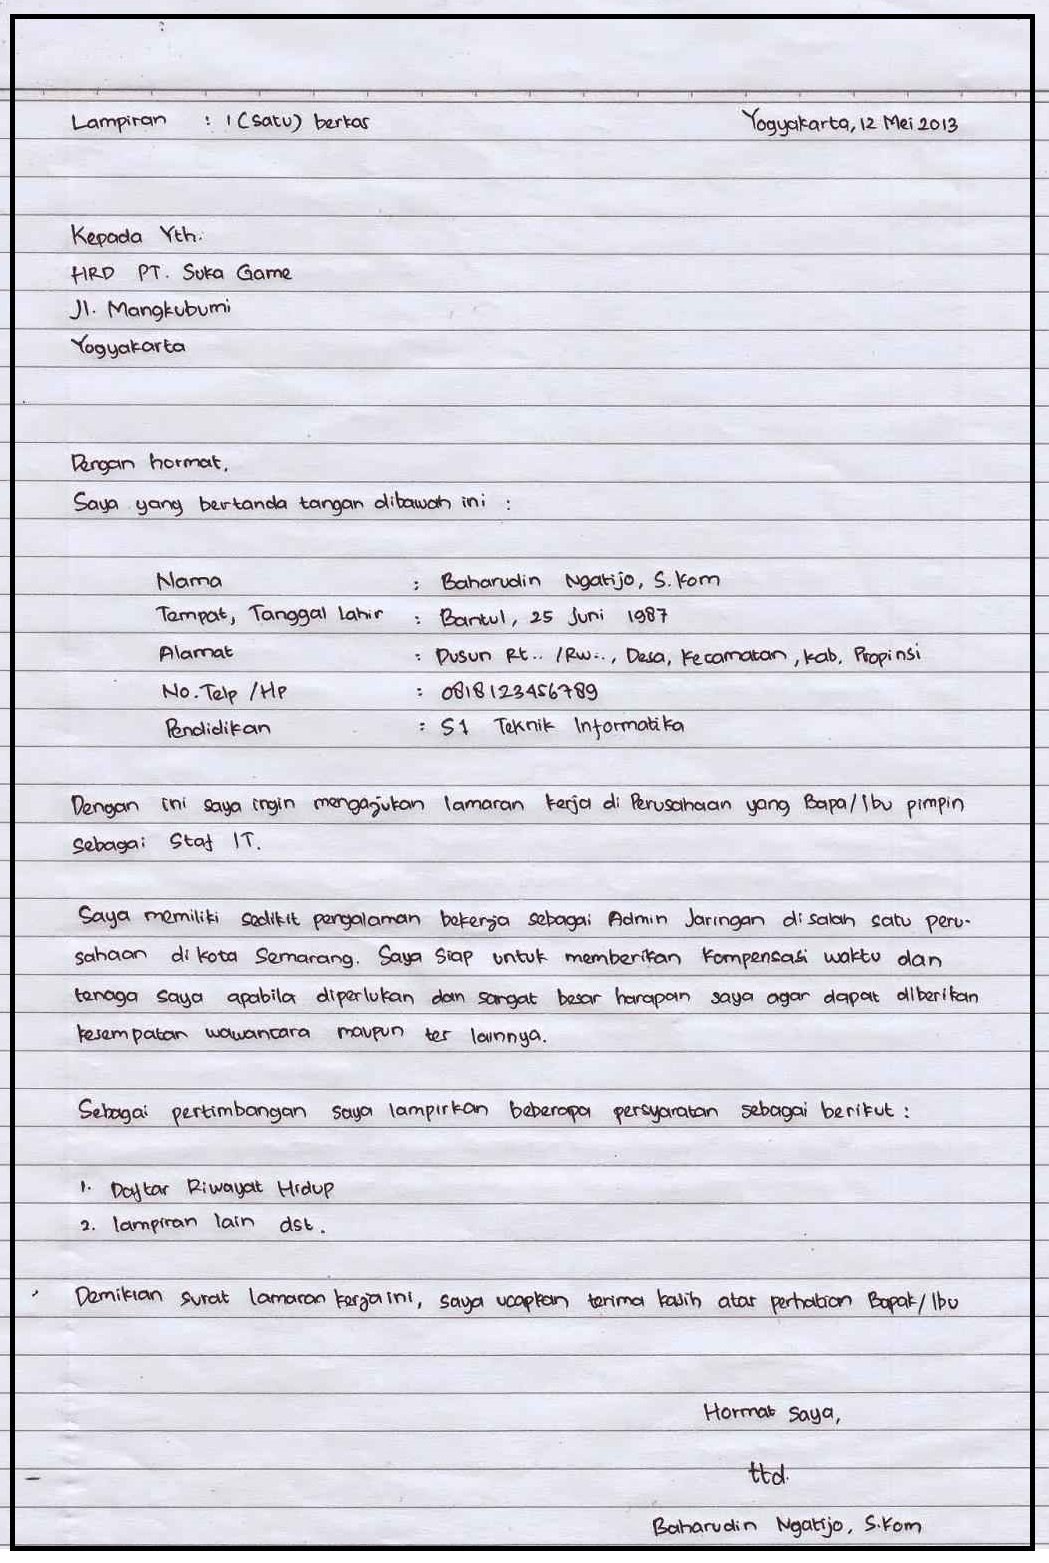 Lampiran : 1 (satu) berkas Yogyakarta, 12 Mei 2013
Kepada Yth.
HRD PT. Suka Game
Jl. Mangkubumi
Yogyakarta
Dengan hormat,
Saya yang bertanda tangan dibawah ini :
Nama : Baharudin Ngatijo, S.Kom
Tempat, Tanggal Lahir : Bantul, 25 Juni 1987
Alamat : Dusun Rt.. /Rw.., Desa, Kecamatan, Kab, Propinsi
No. Telp /Hp : 0818123456789
Pendidikan : S1 Teknik Informatika
Dengan ini saya ingin mengajukan lamaran kerja di Perusahaan yang Bapa/Ibu pimpin
sebagai Staf IT.
Saya memiliki sedikit pengalaman bekerja sebagai Admin Jaringan di salah satu peru-
sahaan di kota Semarang. Saya siap untuk memberikan kompensasi waktu dan
tenaga saya apabila diperlukan dan sangat besar harapan saya agar dapat diberikan
kesempatan wawancara maupun tes lainnya.
Sebagai pertimbangan saya lampirkan beberapa persyaratan sebagai berikut :
1. Daftar Riwayat Hidup
2. lampiran lain dst.
Demikian surat lamaran kerja ini, saya ucapkan terima kasih atas perhatian Bapak/Ibu
Hormat Saya,
ttd.
Baharudin Ngatijo, S.Kom